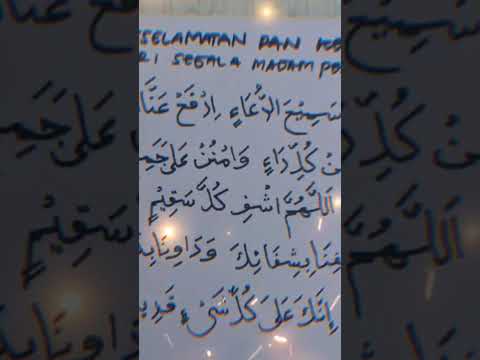 ESELAMATAN DAN KE
RI SEGALA MADAM PE
سَمِيْعَ الدُّعَاءِ اِدْفَعْ عَنَّا
نْ كُلِّ دَاءٍ وَامْنُنْ عَلَى جَمِ
اَللّٰهُمَّ اشْفِ كُلَّ سَقِيْمٍ
فِنَا بِشِفَائِكَ وَدَاوِنَا بِ
اِنَّكَ عَلَى كُلِّ شَيْءٍ قَدِي